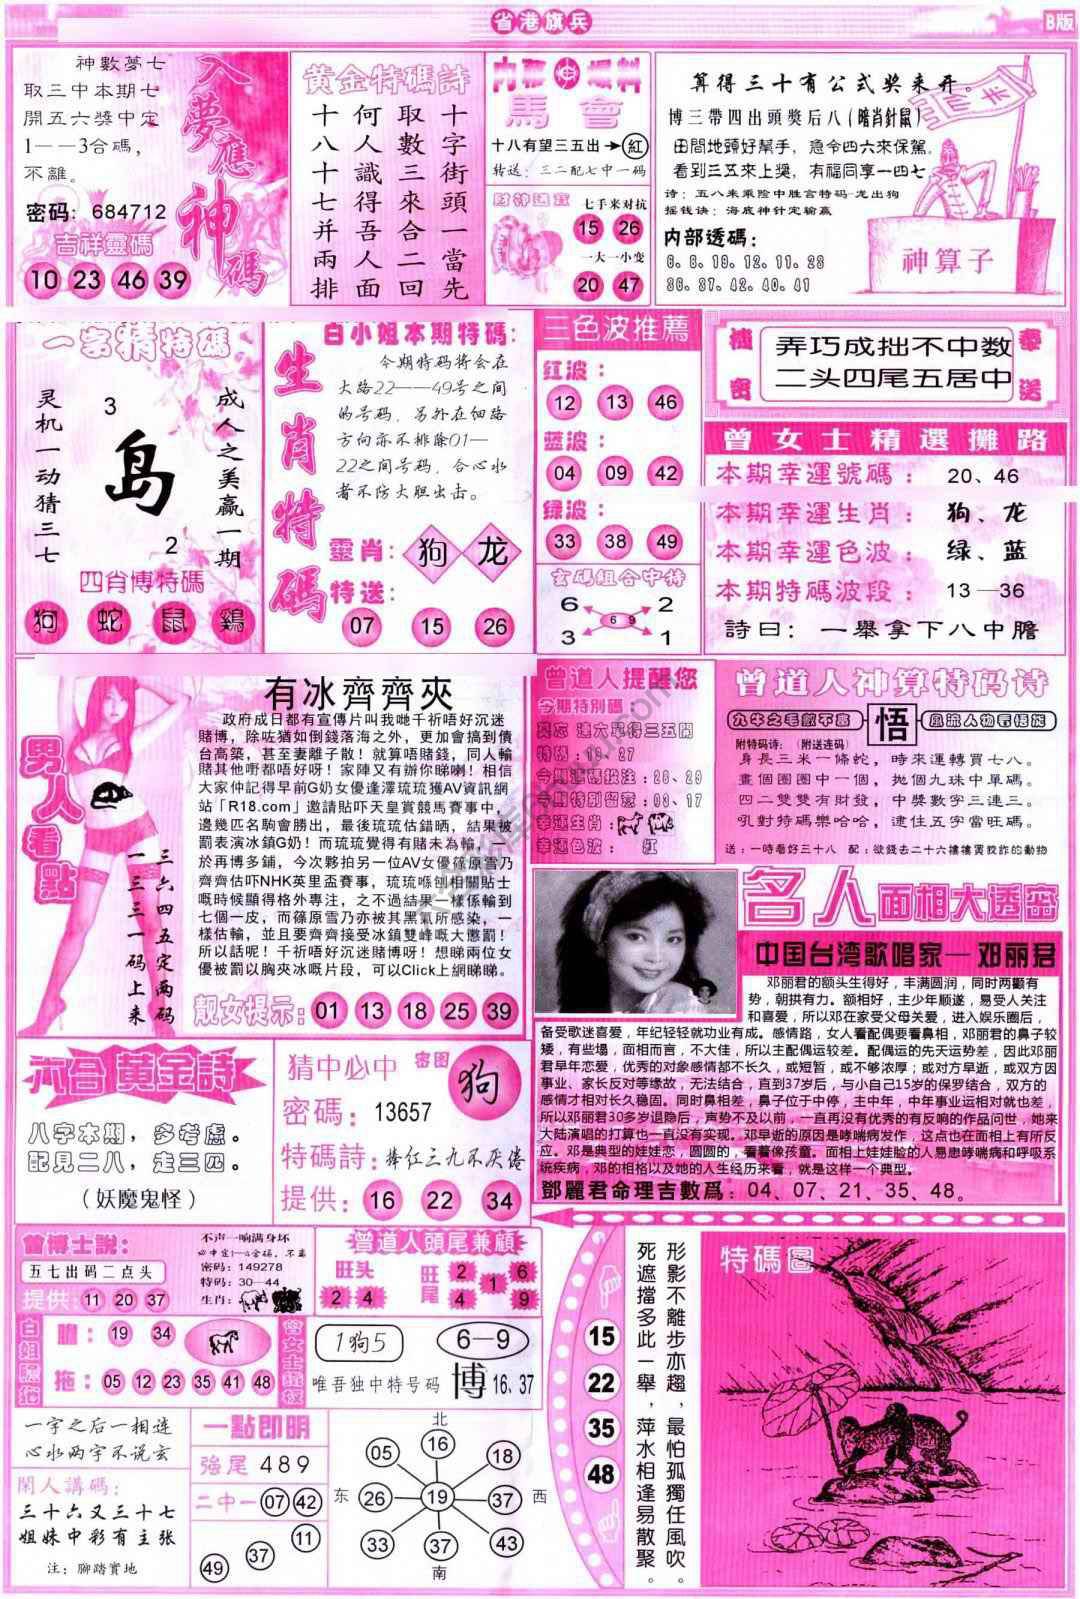 省港旗兵
B版
神數夢七
取三中本期七
開五六獎中定
1——3合碼，
不離。
密码：684712
吉祥靈碼
10 23 46 39
入夢應神碼
黄金特碼詩
十字街頭一當先
取數三來合二回
何人識得吾人面
十八十七并兩排
馬會
十八有望三五出→紅
转送：三二配七中一码
七手来对抗
15 26
一大一小变
20 47
算得三十有公式奖来开。
博三帶四出頭獎后八(瞻肖針鼠)
田間地頭好幫手，急令四六來保駕。
看到三五來上獎，有福同享一四七
诗：五八来乘险中胜宫特码-龙出狗
摇钱诀：海底神针定输赢
内部透碼：
36.37.42.40.41
神算子
一字猜特碼
灵机一动猜三七
3
岛
2
成人之美赢一期
四肖博特碼
狗 蛇 鼠 鷄
生肖特碼
白小姐本期特碼：
今期特码将会在
大路22——49号之间
的号码，另外在细路
方向亦不排除01—
22之间号码，合心水
者不防大胆出击。
靈肖：狗 龙
特送：
07 15 26
三色波推薦
红波：
12 13 46
蓝波：
04 09 42
绿波：
33 38 49
玄碼組合中特
6 2
6 9
3 1
機密
弄巧成拙不中数
二头四尾五居中
奉送
曾女士精選攤路
本期幸運號碼：20、46
本期幸運生肖：狗、龙
本期幸運色波：绿、蓝
本期特碼波段：13—36
詩曰：一舉拿下八中膽
男人看點
三六四五定两码
一三三一码上来
有冰齊齊夾
政府成日都有宣傳片叫我哋千祈唔好沉迷
賭博，除咗猶如倒錢落海之外，更加會搞到債
台高築，甚至妻離子散！就算唔賭錢，同人輸
賭其他嘢都唔好呀！家陣又有辦你睇喇！相信
大家仲記得早前G奶女優逢澤琉琉獲AV資訊網
站「R18.com」邀請貼吓天皇賞競馬賽事中，
邊幾匹名駒會勝出，最後琉琉估錯晒，結果被
罰表演冰鎮G奶！而琉琉覺得有賭未為輸，一
於再博多鋪，今次夥拍另一位AV女優篠原雪乃
齊齊估吓NHK英里盃賽事，琉琉喺刨相關貼士
嘅時候顯得格外專注，之不過結果一樣係輸到
七個一皮，而篠原雪乃亦被其黑氣所感染，一
樣估輸，並且要齊齊接受冰鎮雙峰嘅大懲罰！
所以話呢！千祈唔好沉迷賭博呀！想睇兩位女
優被罰以胸夾冰嘅片段，可以Click上網睇睇。
靓女提示：01 13 18 25 39
曾道人提醒您
今期特別碼：
特碼：07 27
今期特别留意：03、17
幸运生肖：
幸运色波： 紅
曾道人神算特码诗
九牛之毛數不富
悟
風流人物看悟版
附特码诗：(附送连码)
身長三米一條蛇，時來運轉買七八。
畫個圈圈中一個，抛個九珠中單碼。
四二雙雙有財發，中獎數字三連三。
吼對特碼樂哈哈，逮住五字當旺碼。
送：一時看好三十八 配：欲錢去二十六樓樓賣狡詐的動物
名人面相大透密
中国台湾歌唱家—邓丽君
邓丽君的额头生得好，丰满圆润，同时两颧有
势，朝拱有力。额相好，主少年顺遂，易受人关注
和喜爱，所以邓在家受父母关爱，进入娱乐圈后，
备受歌迷喜爱，年纪轻轻就功业有成。感情路，女人看配偶要看鼻相，邓丽君的鼻子较
矮，有些塌，面相而言，不大佳，所以主配偶运较差。配偶运的先天运势差，因此邓丽
君早年恋爱，优秀的对象感情都不长久，或短暂，或不够浓厚；或对方早逝，或双方因
事业、家长反对等缘故，无法结合，直到37岁后，与小自己15岁的保罗结合，双方的
感情才相对长久稳固。同时鼻相差，鼻子位于中停，主中年，中年事业运相对就也差，
所以邓丽君30多岁退隐后，声势不及以前，一直再没有优秀的有反响的作品问世，她来
大陆演唱的打算也一直没有实现。邓早逝的原因是哮喘病发作，这点也在面相上有所反
应。邓是典型的娃娃恋，圆圆的，看着像孩童。面相上娃娃脸的人易患哮喘病和呼吸系
统疾病，邓的相格以及她的人生经历来看，就是这样一个典型。
鄧麗君命理吉數爲：04、07、21、35、48。
六合黄金詩
八字本期，多考虑。
配見二八，走三四。
(妖魔鬼怪)
猜中必中 密图
狗
密碼：13657
特碼詩：捧任三九不厌倦
提供：16 22 34
曾博士説：
五七出码二点头
提供：11 20 37
不声一响满身坏
必中定1—4合码，不离
密码：149278
特码：30—44
生肖：
曾道人頭尾兼顧
旺头
2 4
旺尾
2 1 6
4 9
膽：19 34
拖：05 12 23 35 41 48
1狗5
6—9
唯吾独中特号码 博 16、37
一字之后一相连
心水两字不说玄
閑人講碼：
三十六又三十七
姐妹中彩有主张
注：腳踏實地
一點即明
強尾 489
二中一 07 42
11
37
49
北
16
05 18
东 26 19 37 西
33 43
37
南
15
22
35
48
形影不離步亦趨，最怕孤獨任風吹。
死遮擋多此一舉，萍水相逢易散聚。
特碼圖